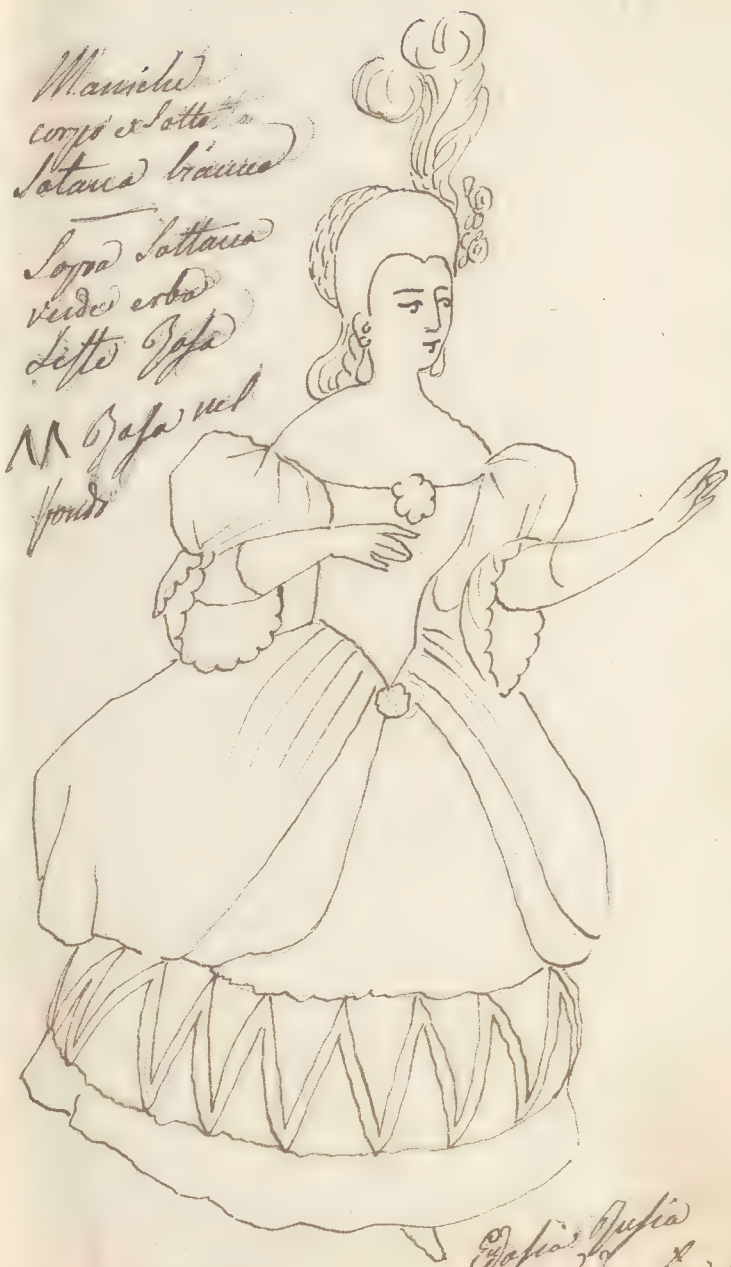 Maniche
corpo e sotto
sotana bianca
Sopra Sottana
verde erba
Liste Rosa
Rosa nel
fondo